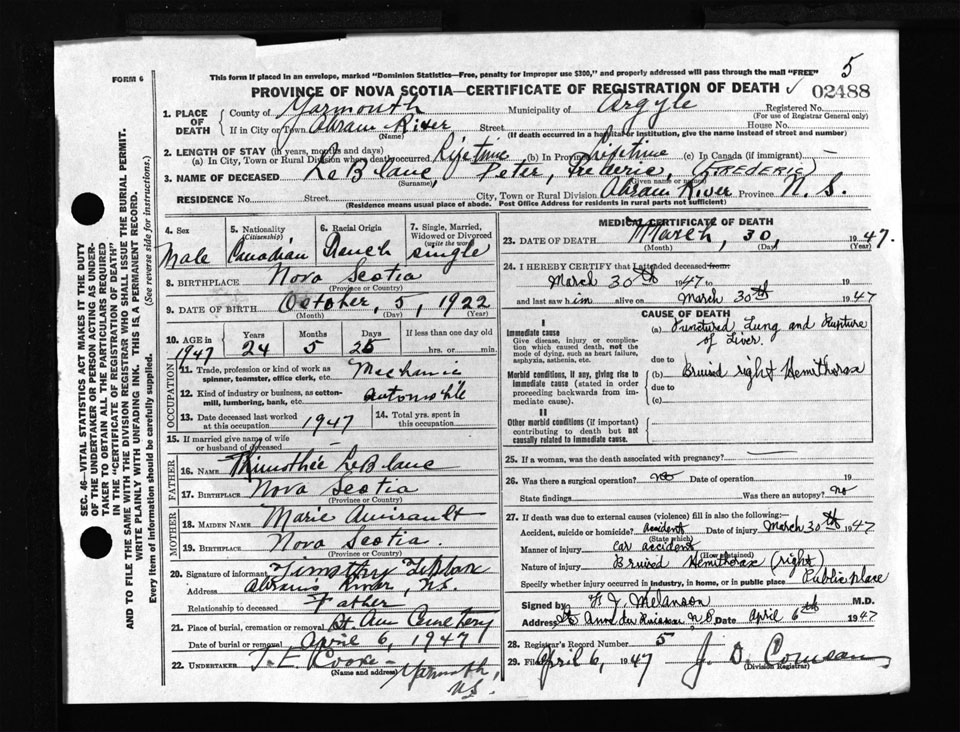 FORM 6
This form if placed in an envelope, marked "Dominion Statistics—Free, penalty for improper use $300," and properly addressed will pass through the mail "FREE"
5
PROVINCE OF NOVA SCOTIA—CERTIFICATE OF REGISTRATION OF DEATH
02488
1. PLACE OF DEATH
County of Yarmouth Municipality of Argyle Registered No.
(For use of Registrar General only)
If in City or Town Abram River Street House No.
(Name) (If death occurred in a hospital or institution, give the name instead of street and number)
2. LENGTH OF STAY (in years, months and days)
(a) In City, Town or Rural Division where death occurred Lifetime (b) In Province Lifetime (c) In Canada (if immigrant)
3. NAME OF DECEASED LeBlanc, Peter, Frederic, (FREDERIC)
(Surname) Given name or names
RESIDENCE No. Street City, Town or Rural Division Abram River Province N. S.
(Residence means usual place of abode. Post Office Address for residents in rural parts not sufficient)
4. Sex Male
5. Nationality (Citizenship) Canadian
6. Racial Origin French
7. Single, Married, Widowed or Divorced (write the word) single
8. BIRTHPLACE Nova Scotia
(Province or Country)
9. DATE OF BIRTH October, 5, 1922
(Month) (Day) (Year)
10. AGE in 1947 Years 24 Months 5 Days 25 If less than one day old hrs. or min.
OCCUPATION
11. Trade, profession or kind of work as spinner, teamster, office clerk, etc. Mechanic
12. Kind of industry or business, as cotton-mill, lumbering, bank, etc. automobile
13. Date deceased last worked at this occupation 1947
14. Total yrs. spent in this occupation
15. If married give name of wife or husband of deceased
FATHER
16. NAME Thimothée LeBlanc
17. BIRTHPLACE Nova Scotia
(Province or Country)
MOTHER
18. MAIDEN NAME Marie Amirault
19. BIRTHPLACE Nova Scotia.
(Province or Country)
20. Signature of informant Timothy
Address Abrams River, N.S.
Relationship to deceased Father
21. Place of burial, cremation or removal St. Ann Cemetery
Date of burial or removal April 6, 1947
22. UNDERTAKER
(Name and address) Yarmouth, N.S.
MEDICAL CERTIFICATE OF DEATH
23. DATE OF DEATH March, 30, 1947.
(Month) (Day) (Year)
24. I HEREBY CERTIFY that I attended deceased from:
March 30th 1947 to 19
and last saw him alive on March 30th 1947
CAUSE OF DEATH
I
Immediate cause
Give disease, injury or complication which caused death, not the mode of dying, such as heart failure, asphyxia, asthenia, etc.
(a) Punctured Lung and Rupture of Liver.
due to
Morbid conditions, if any, giving rise to immediate cause (stated in order proceeding backwards from immediate cause).
(b) Bruised right Hemithorax
due to
(c)
II
Other morbid conditions (if important) contributing to death but not causally related to immediate cause.
25. If a woman, was the death associated with pregnancy?
26. Was there a surgical operation? no Date of operation 19
State findings Was there an autopsy? no
27. If death was due to external causes (violence) fill in also the following:—
Accident, suicide or homicide? accident Date of injury March 30th 1947
(State which)
Manner of injury car accident
(How sustained)
Nature of injury Bruised Hemithorax (right)
Specify whether injury occurred in industry, in home, or in public place Public place
Signed by Melanson M.D.
Address Date April 6th 1947
28. Registrar's Record Number 5
29. Filed April 6, 1947
(Division Registrar)
SEC. 46—VITAL STATISTICS ACT MAKES IT THE DUTY OF THE UNDERTAKER OR PERSON ACTING AS UNDERTAKER TO OBTAIN ALL THE PARTICULARS REQUIRED IN THE "CERTIFICATE OF REGISTRATION OF DEATH" AND TO FILE THE SAME WITH THE DIVISION REGISTRAR WHO SHALL ISSUE THE BURIAL PERMIT.
WRITE PLAINLY WITH UNFADING INK. THIS IS A PERMANENT RECORD.
Every item of information should be carefully supplied. (See reverse side for instructions.)